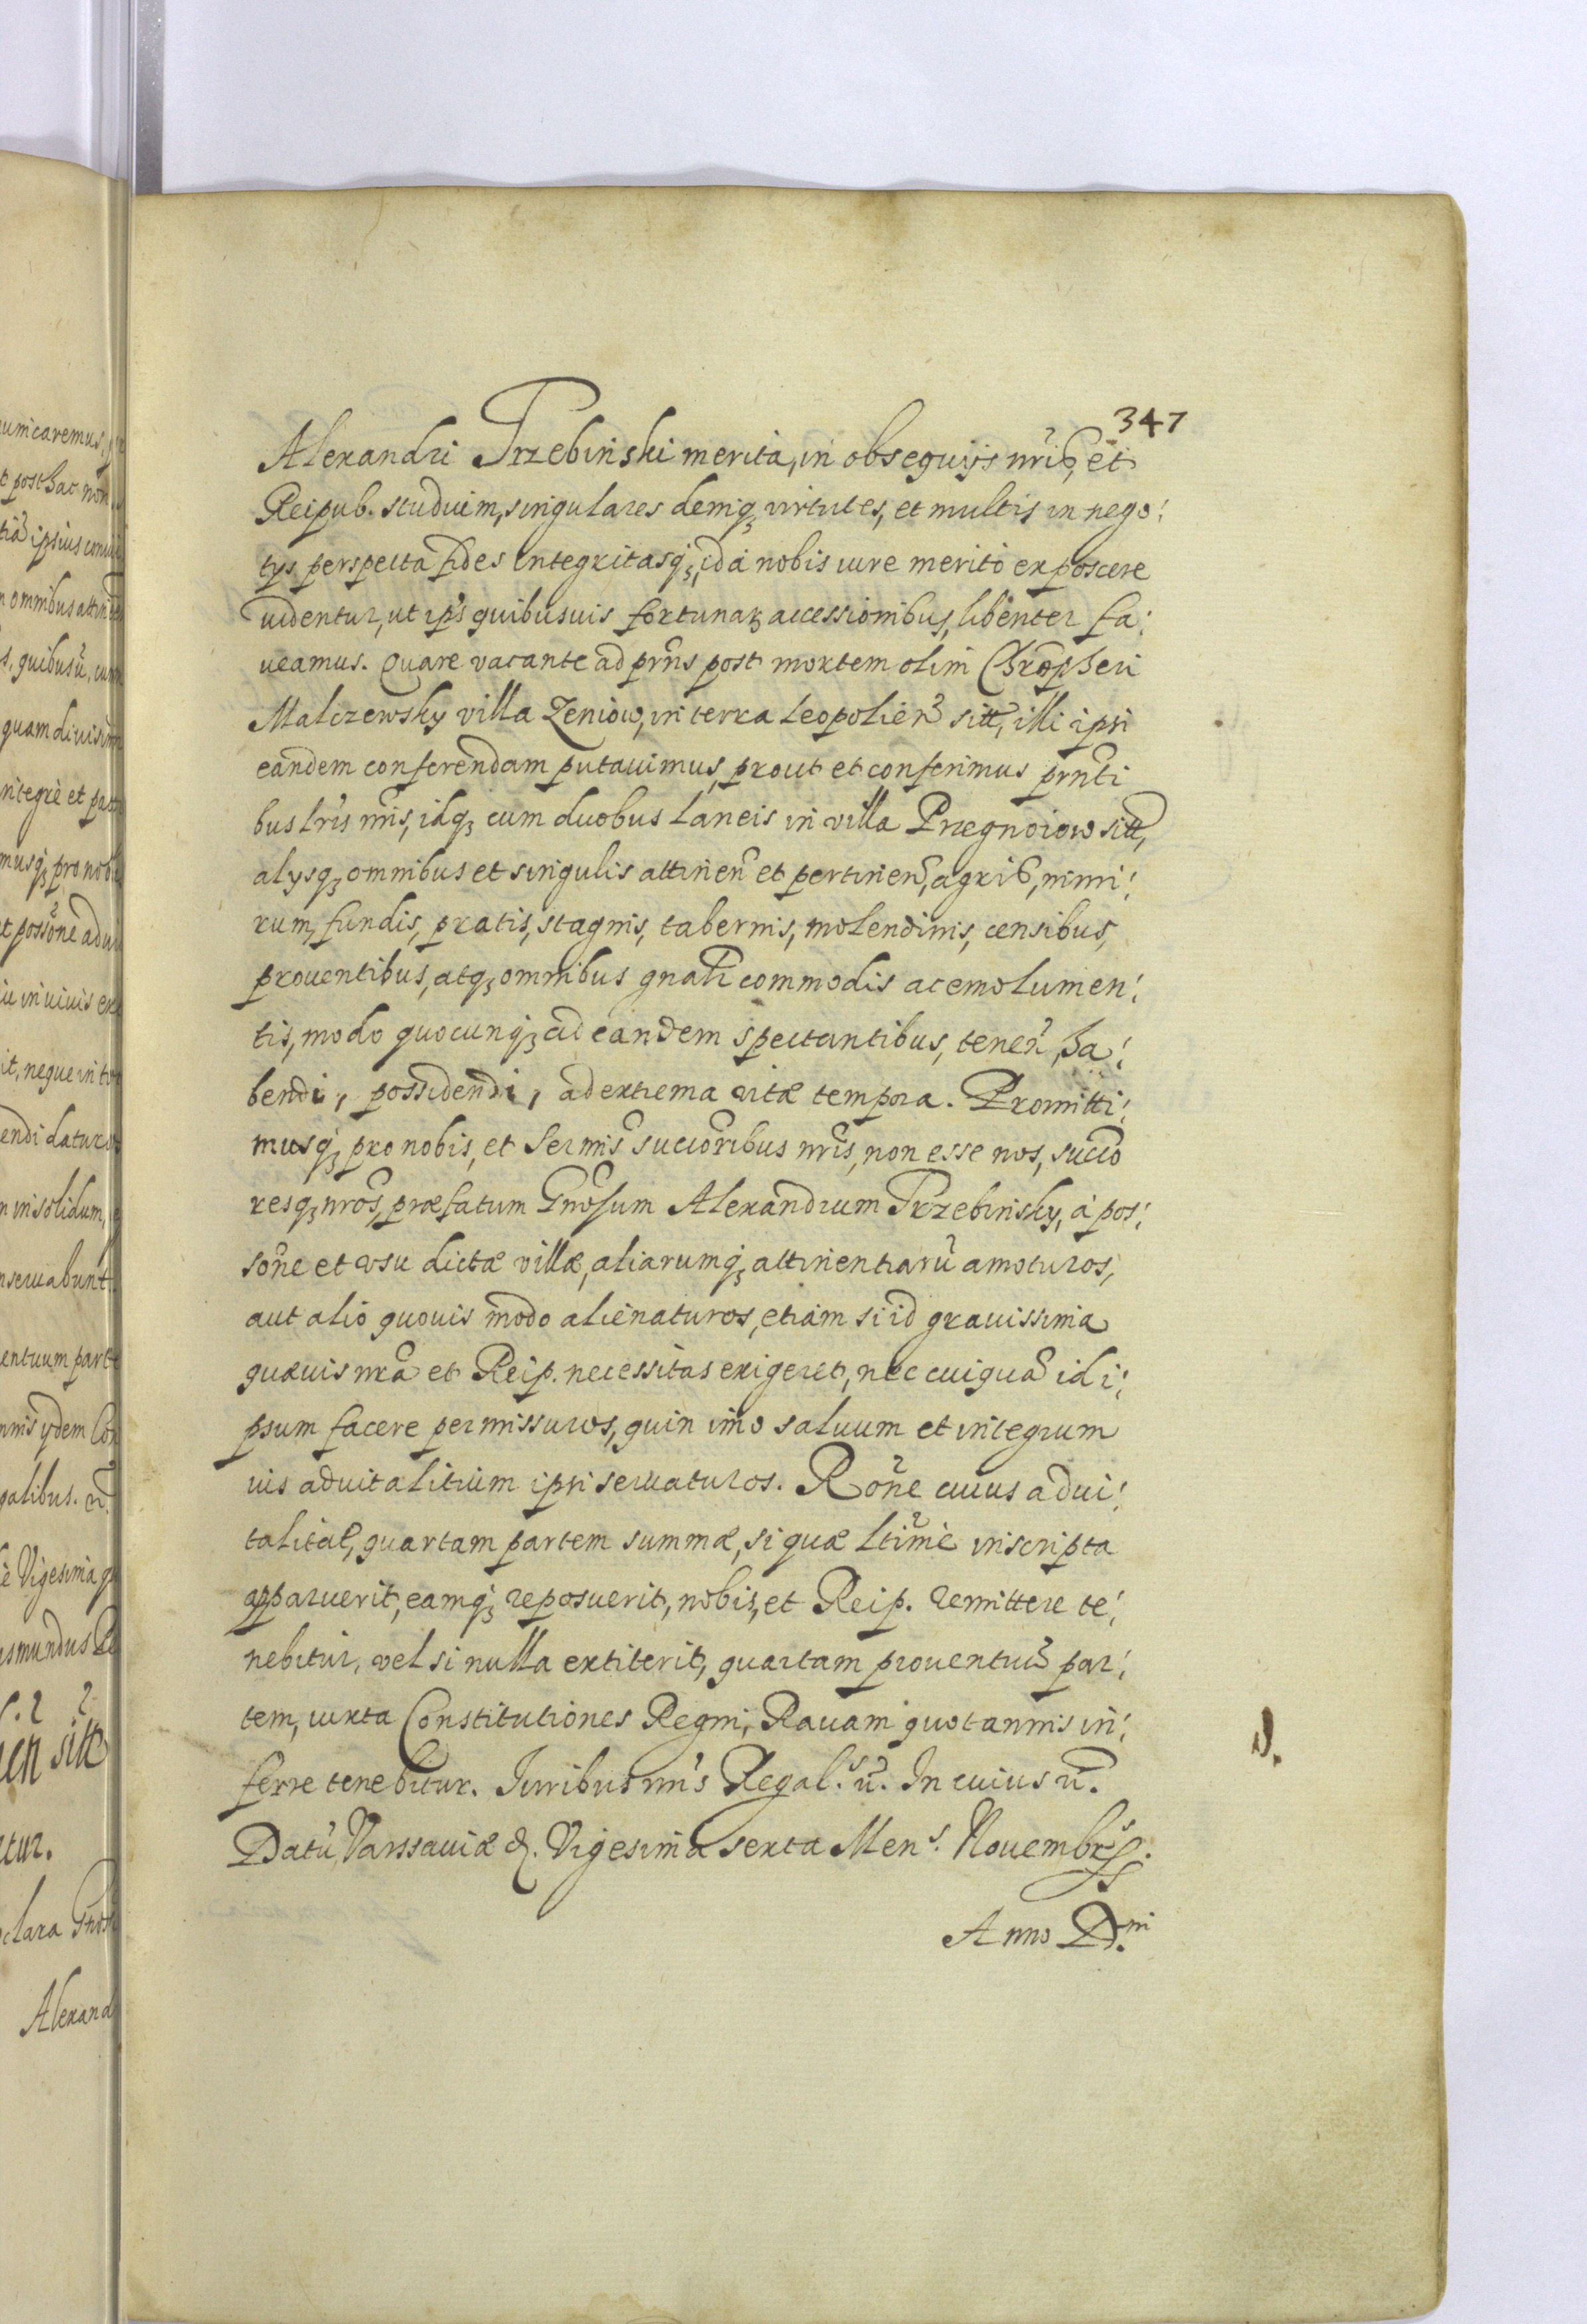 347
Alexandri Trzebinski merita, in obsequijs nris, et
Reipub. studium, singulares deniq, virtutes, et multis in nego:
tys perspecta fides integritasq, id à nobis iure merito exposcere
videntur, ut ipsi quibusuis fortunar accessionibus, libenter fa:
ueamus. Quare vacante ad prns post mortem olim Chropheri
Malczewsky villa Zeniow, in terra Leopolien sitt, illi ipsi
eandem conferendam putauimus, prout et conferimus prnti
bus lris nris, idq cum duobus laneis in villa Przegnoiow sitt,
alysq omnibus et singulis attinen et pertinen, agris, nimi:
rum, fundis, pratis, stagnis, tabernis, molendinis, censibus,
prouentibus, atq omnibus gnalr commodis ac emolumen:
tis, modo quocunq ad eandem spectantibus, tenen, ha:
bendi, possidendi, ad extrema vitæ tempora. Promitti:
musq pro nobis, et Sermis succoribus nris, non esse nos, succo
resq nros, præfatum Gnosum Alexandrum Trzebinsky, à pos:
sone et vsu dictæ villæ, aliarumq attinentiarū amoturos,
aut alio quouis modo alienaturos, etiam si id grauissima
quæuis nra et Reip. necessitas exigeret, nec cuiquā id i:
psum facere permissuros, quin imo saluum et integrum
ius aduitalitium ipsi seruaturos. Rone cuius adui:
talitat, quartam partem summæ, si quæ ltime inscripta
apparuerit, eamq reposuerit, nobis, et Reip. remittere te:
nebitur, vel si nulla extiterit, quartam prouentuū par:
tem, iuxta Constitutiones Regni, Rauam quotannis in:
ferre tenebitur. Iuribus nris Regal. ū. In cuius ū.
Datū Varssauiæ d. Vigesima sexta Mens. Nouembris.
Anno D.ni